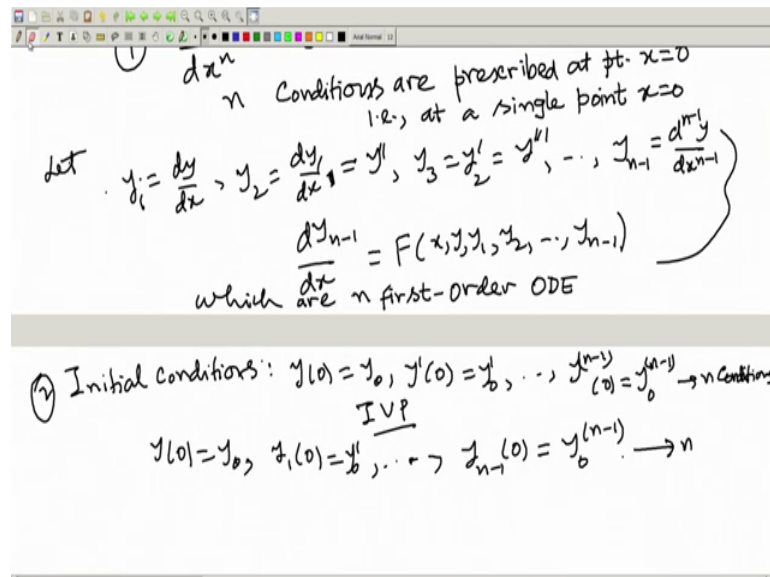 Arial Normal 12
① dxⁿ
n Conditions are prescribed at pt. x=0
i.e., at a single point x=0
Let y₁ = dy/dx, y₂ = dy₁/dx = y'', y₃ = y₂' = y''', .., yₙ₋₁ = dⁿ⁻¹y/dxⁿ⁻¹
dyₙ₋₁/dx = F(x, y, y₁, y₂, .., yₙ₋₁)
which are n first-order ODE
② Initial conditions: y(0) = y₀, y'(0) = y₀', .., y⁽ⁿ⁻¹⁾(0) = y₀⁽ⁿ⁻¹⁾ → n Conditions
IVP
y(0) = y₀, y₁(0) = y₀', ..., yₙ₋₁(0) = y₀⁽ⁿ⁻¹⁾ → n